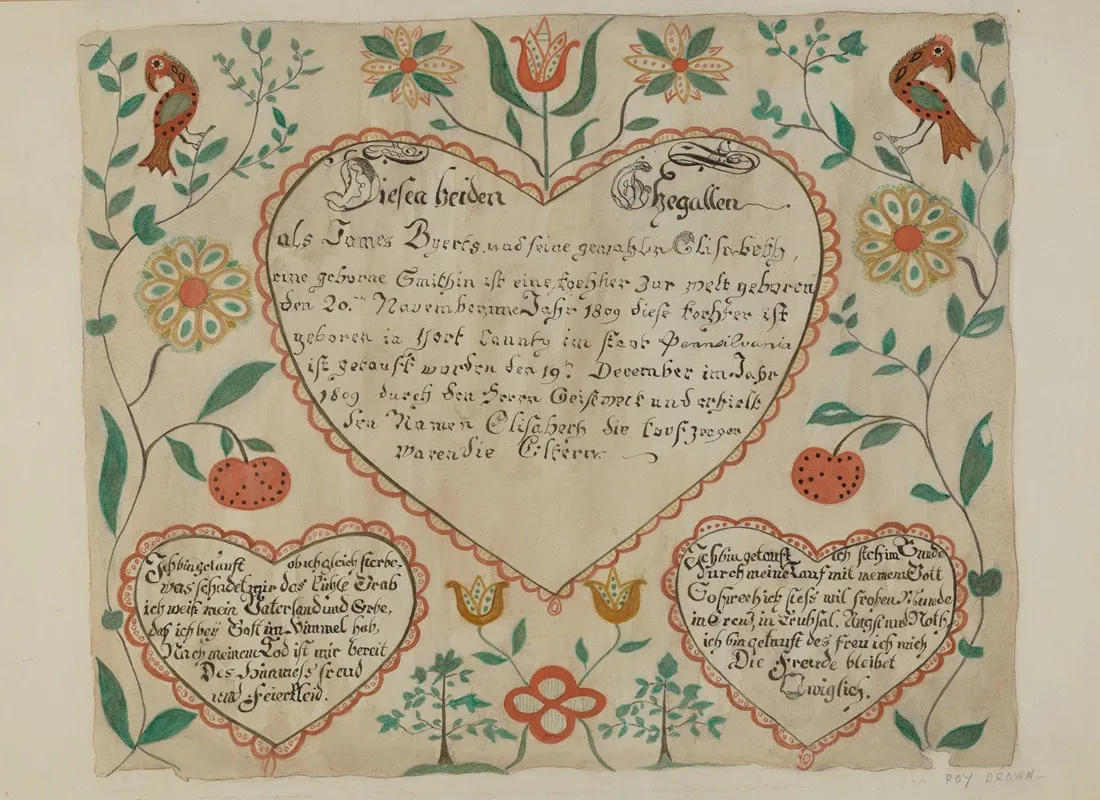 Diesen beiden Ehegatten
als James Byerts und seine gemahlen Elisabeth,
eine geborne Smithin ist eine tochter zur welt geboren
den 20. November im Jahr 1809 diese tochter ist
geboren in York County im staat Pennsilvania
ist getauft worden den 19. December im Jahr
1809 durch den Herrn und erhielt
den Namen Elisabeth die taufzeugen
waren die Eltern.
Ich bin getauft ob ich gleich sterbe,
was schadet mir das kühle Grab
ich weiß mein Vaterland und Erbe,
daß ich bey Gott im Himmel hab,
Nach meinem Tod ist mir bereit
Des Himmels freud
und Feierkleid.
Ich bin getauft ich steh im Bunde
Durch meine Tauf mit meinem Gott
So sprech ich stets mit frohen Munde
in Creutz, in Trübsal, Angst und Noth,
ich bin getauft des freu ich mich
Die Freude bleibet
Ewiglich.
ROY BROWN